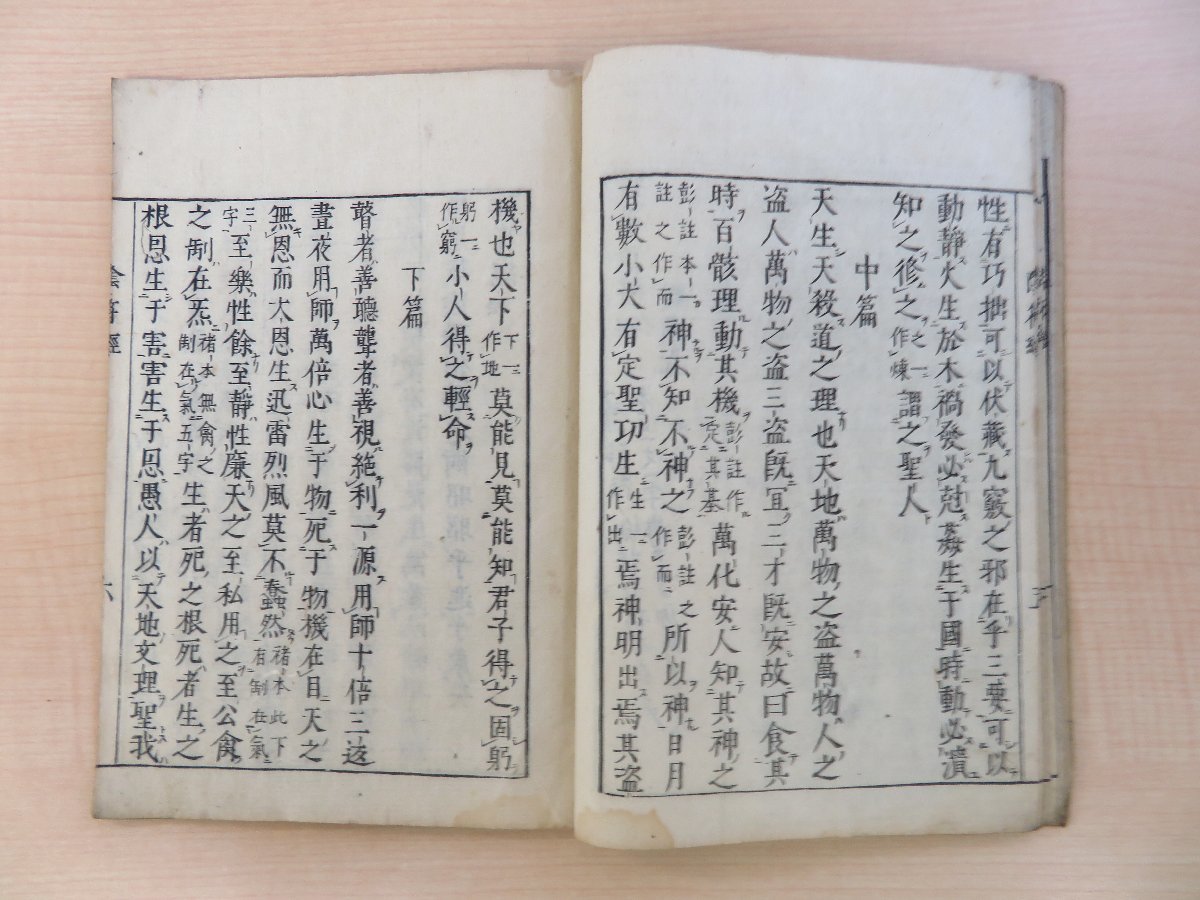 性有巧拙可以伏藏九竅之邪在乎三要可以
動靜火生於木禍發必尅姦生于國時動必潰
知之修之之一作煉謂之聖人
中篇
天生天殺道之理也天地萬物之盜萬物人之
盜人萬物之盜三盜旣宜三才旣安故曰食其
時百骸理動其機彭註作定其基萬化安人知其神之
彭註本一註之作而神不知不神之彭註之作而所以神日月
有數小大有定聖功生生一作出焉神明出焉其盜
機也天下下一作地莫能見莫能知君子得之固躬
躬一作窮小人得之輕命
下篇
瞽者善聽聾者善視絶利一源用師十倍三返
晝夜用師萬倍心生于物死于物機在目天之
無恩而大恩生迅雷烈風莫不蠢然褚本此下有制在氣
三字至樂性餘至靜性廉天之至私用之至公禽
之制在炁褚本無禽之制在氣五字生者死之根死者生之
根恩生于害害生于恩愚人以天地文理聖我
陰符經
六